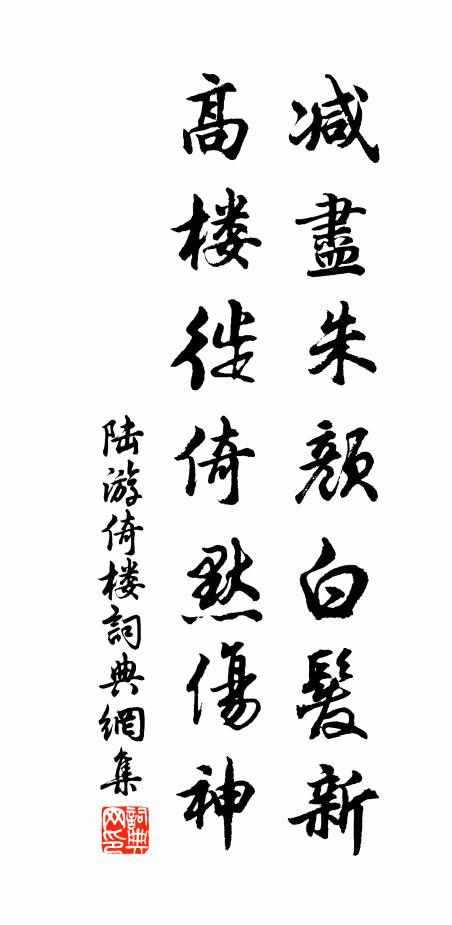 减盡朱顏白髮新
高楼徙倚黙傷神
陆游倚楼詞典網集
詞典网印